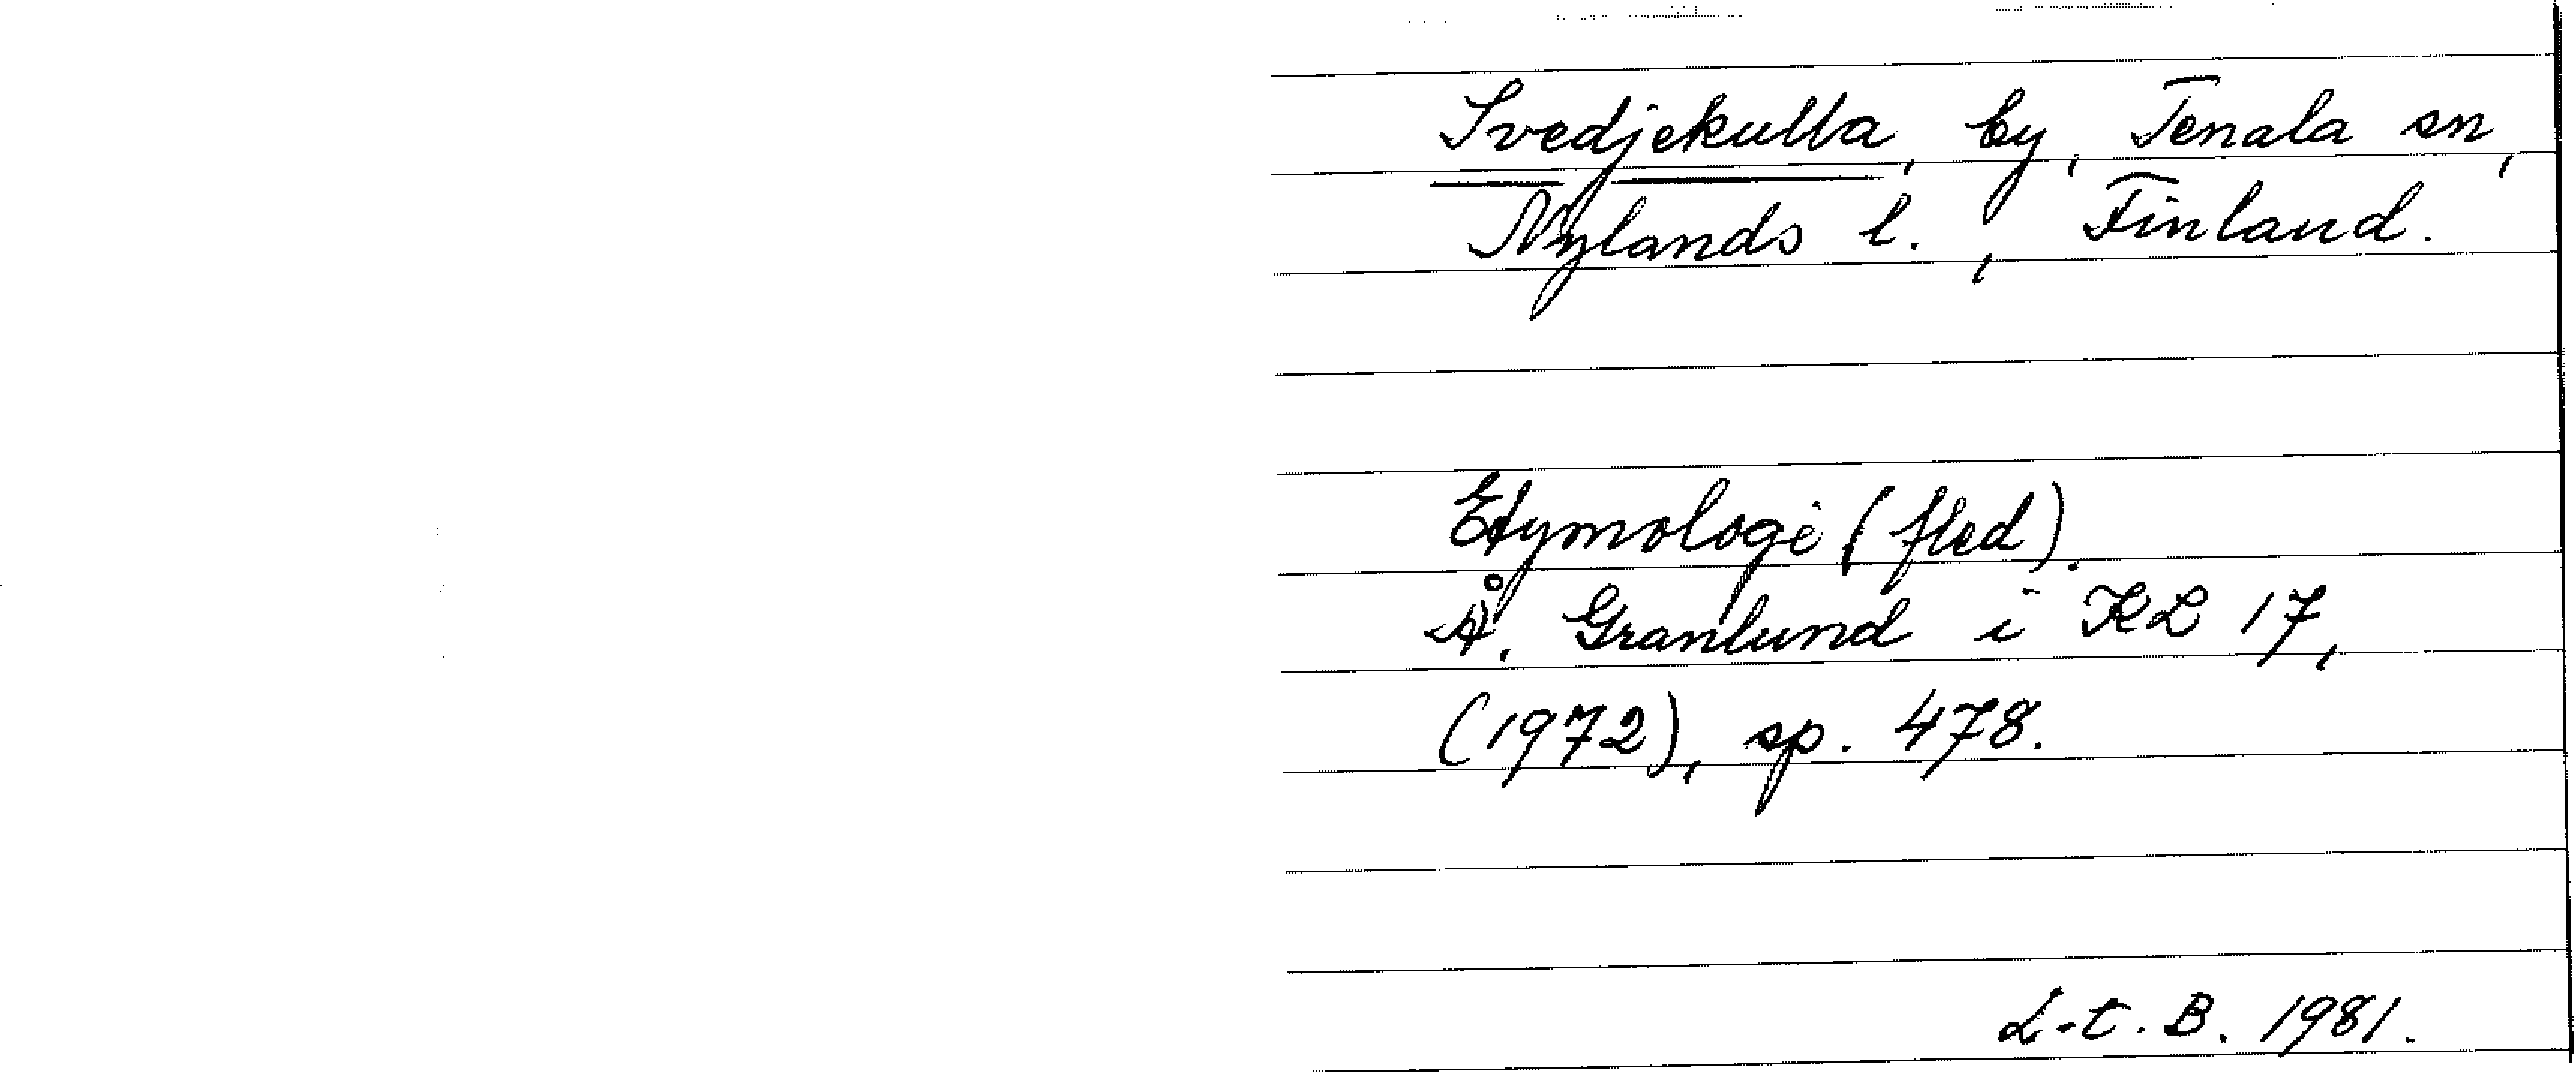 Svedjekulla, by, Tenala sn,
Nylands l., Finland.
Etymologi (fled).
Å. Granlund i KL 17,
(1972), sp. 478.
L-t. B. 1981.